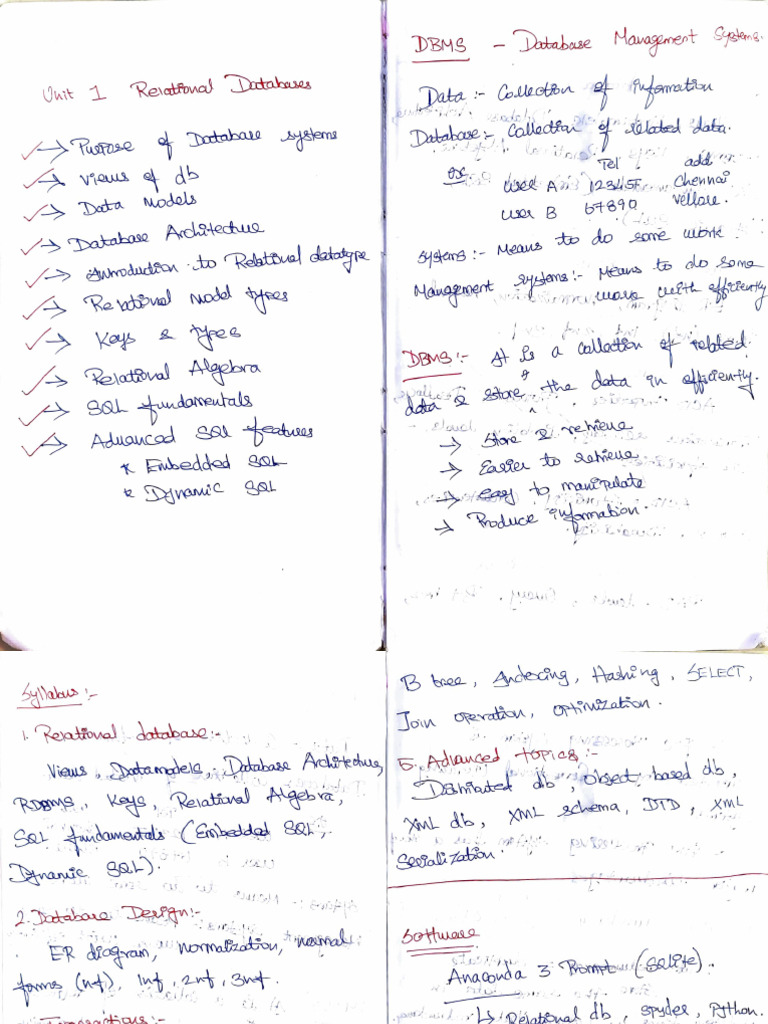 Unit 1 Relational Databases
→ Purpose of Database systems
→ Views of db
→ Data Models
→ Database Architecture
→ Introduction to Relational datatype
→ Relational Model types
→ Keys & types
→ Relational Algebra
→ SQL fundamentals
→ Advanced SQL features
* Embedded SQL
* Dynamic SQL
DBMS - Database Management Systems.
Data :- Collection of information
Database:- Collection of related data.
Tel add
user A 12345 Chennai
user B 67890 Vellore.
Systems :- Means to do some work.
Management systems:- Means to do some
work with efficiently
DBMS :- It is a collection of related
data & store the data in efficiently.
→ Store & retrieve
→ Easier to retrieve
→ easy to manipulate
→ Produce information.
Syllabus :-
1. Relational database:-
Views, Datamodels, Database Architecture,
RDBMS, Keys, Relational Algebra,
SQL fundamentals (Embedded SQL,
Dynamic SQL).
2. Database Design:-
ER diagram, normalization, normal
forms (nf), 1nf, 2nf, 3nf.
Transactions :-
B tree, Indexing, Hashing, SELECT,
Join operation, optimization.
5. Advanced topics :-
Distributed db, object based db,
XML db, XML schema, DTD, XML
Serialization.
Software
Anaconda 3 Prompt (Sqlite).
↳ Relational db, spyder, Python.